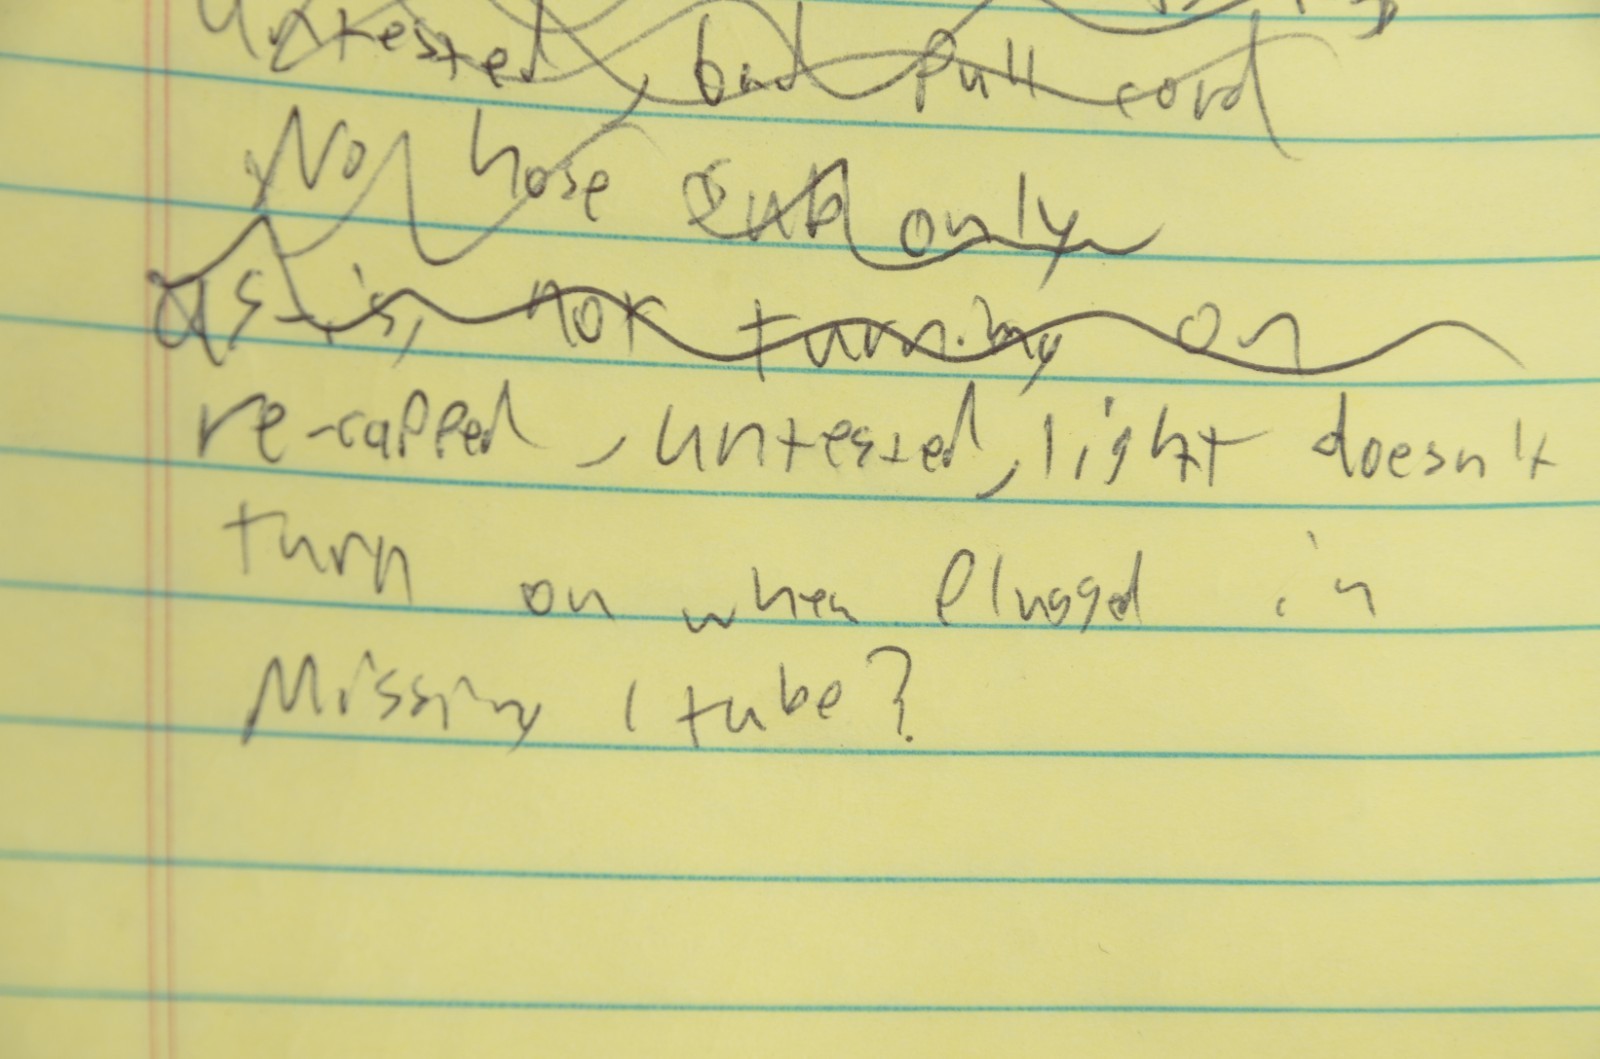 Untested, bad pull cord
No hose only
as-is, not turning on
re-capped, untested, light doesn't
turn on when plugged in
Missing 1 tube?